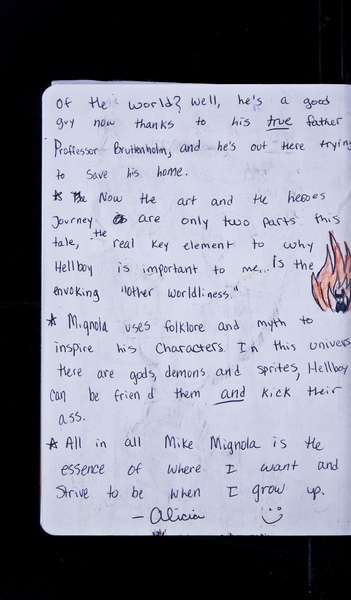 of the world? Well, he's a good
guy now thanks to his true father
Proffessor Bruttenholm, and he's out there trying
to save his home.
* Now the art and the heroes
journey are only two parts this
tale, the real key element to why
Hellboy is important to me... is the
envoking "other worldliness."
* Mignola uses folklore and myth to
inspire his characters. In this univers
there are gods, demons and sprites, Hellboy
can be friend them and kick their
ass.
* All in all Mike Mignola is the
essence of where I want and
strive to be when I grow up.
- Alicia